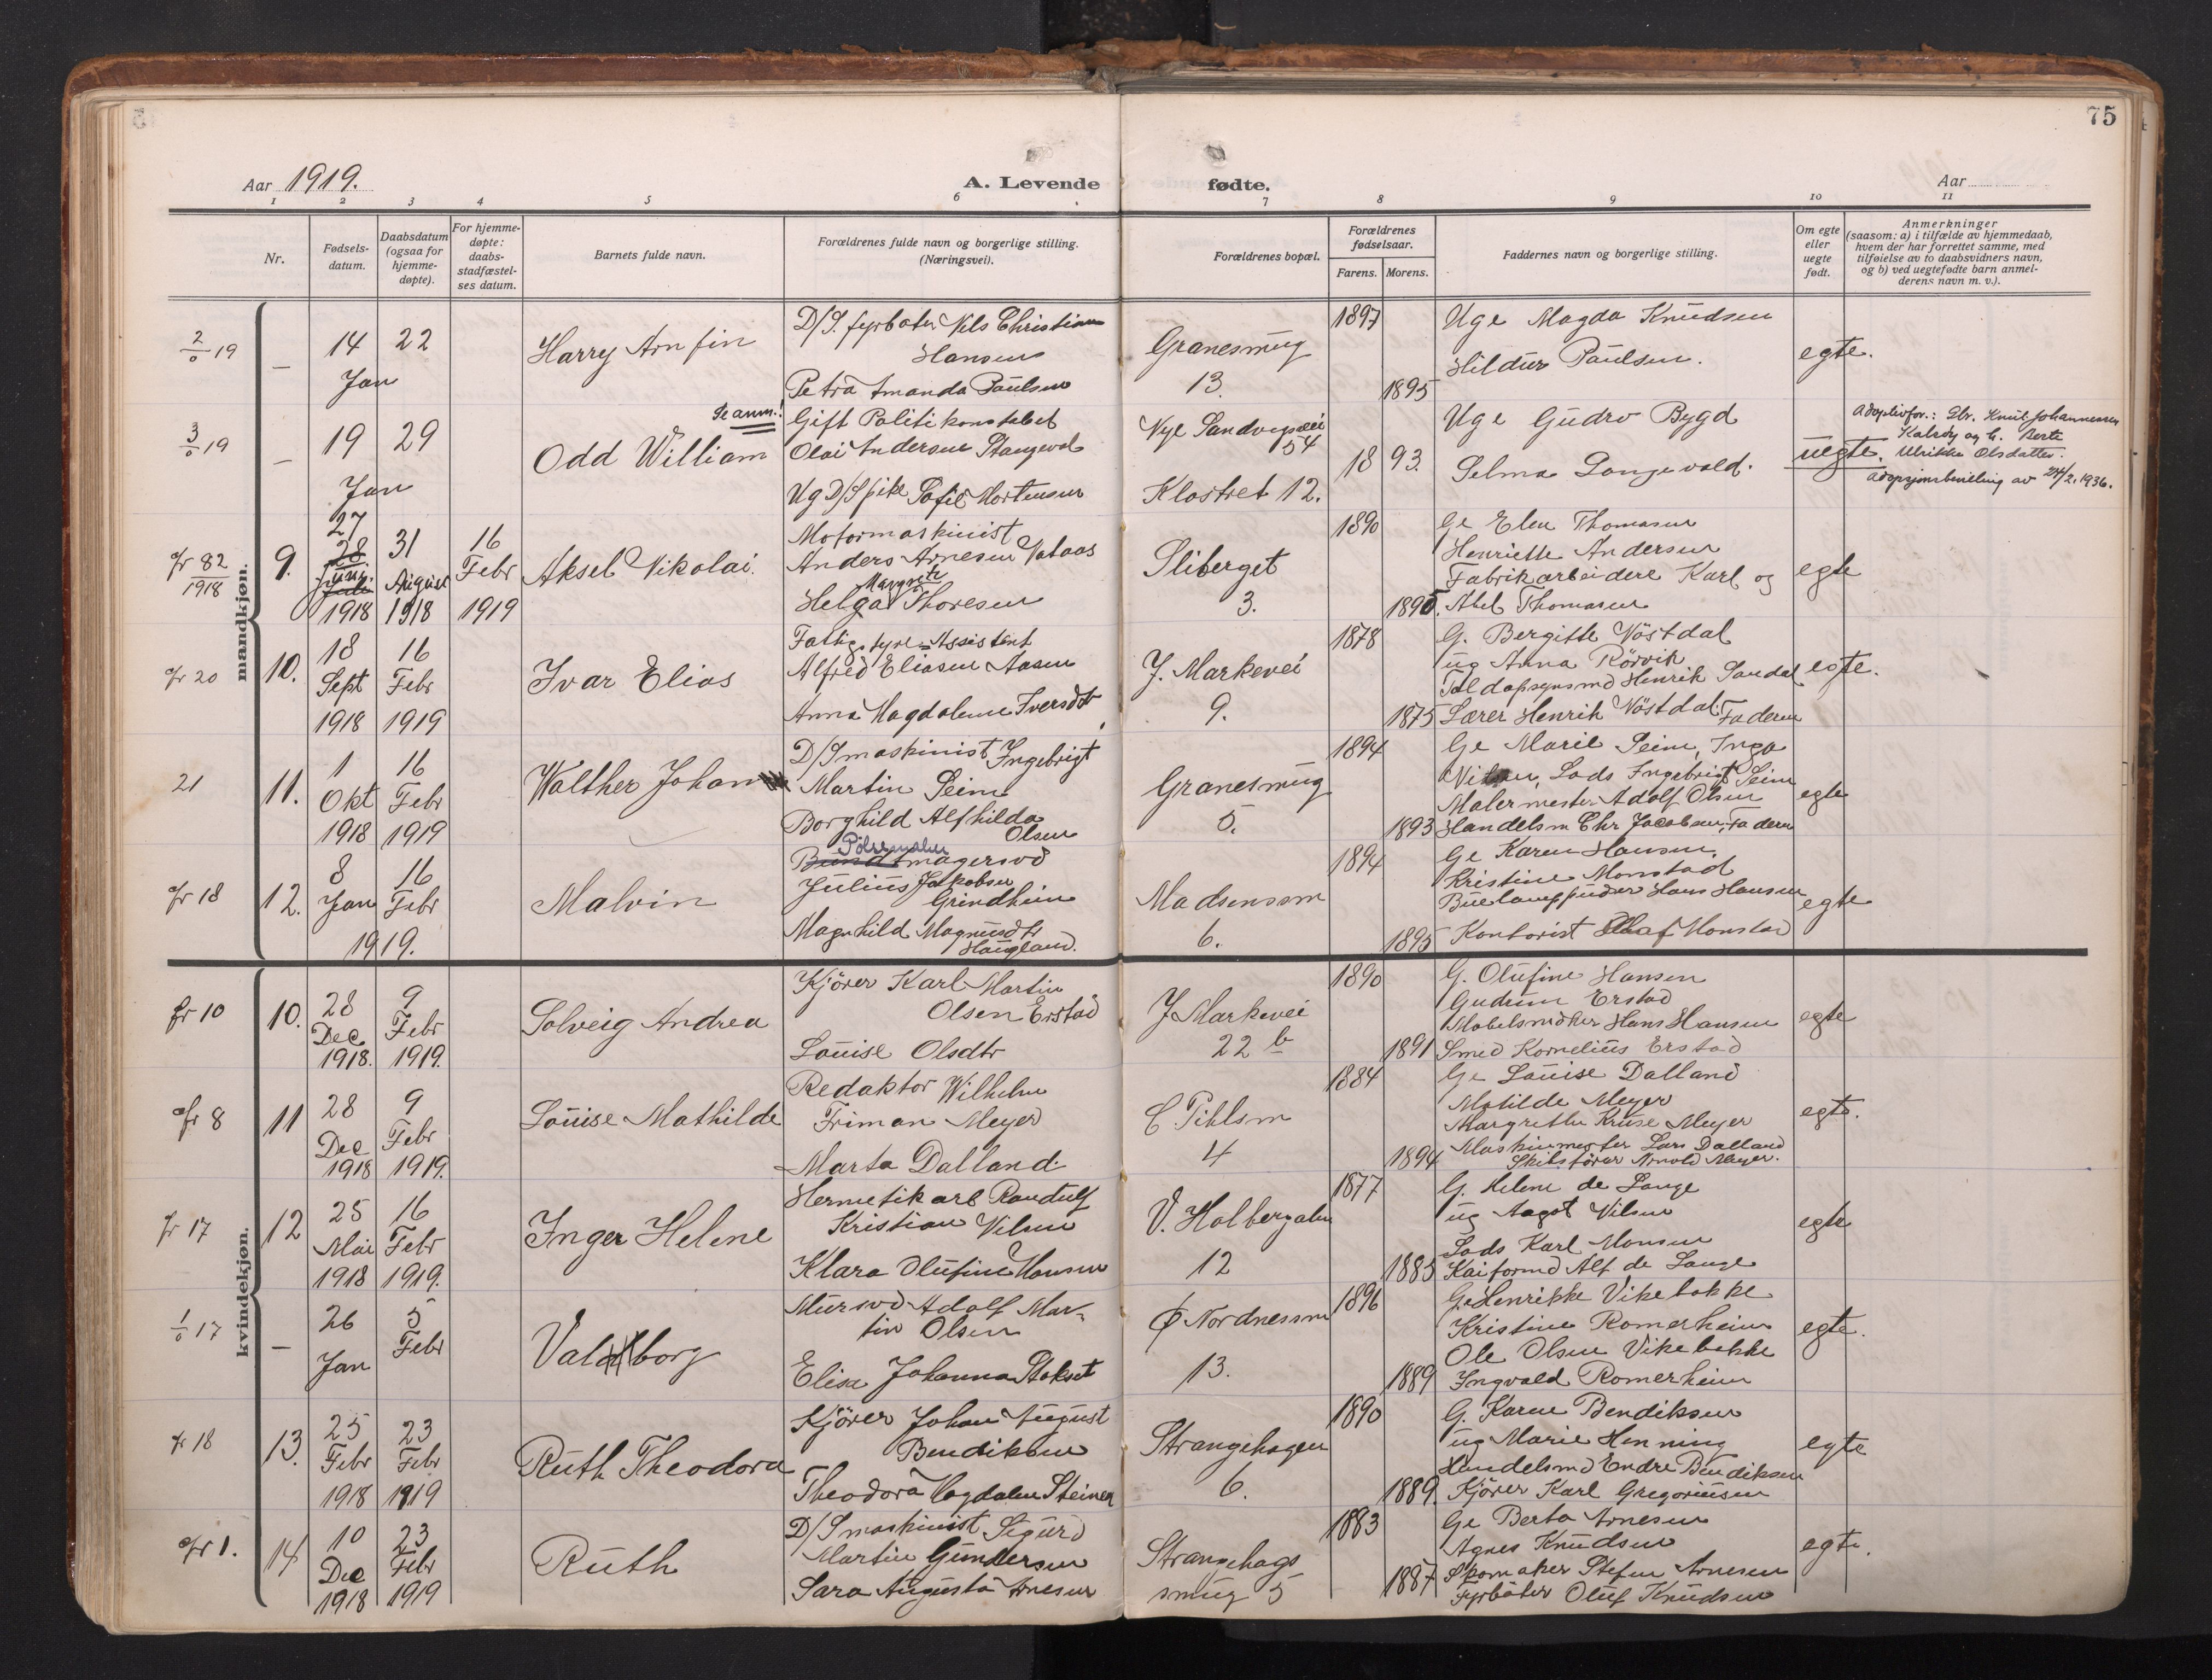 75
Aar 1919.
A. Levende
fødte.
Aar
1 2 3 4 5 6 7 8 9 10 11
Nr.
Fødsels-
datum.
Daabsdatum
(ogsaa for
hjemme-
døpte).
For hjemme-
døpte:
daabs-
stadfæstel-
ses datum.
Barnets fulde navn.
Forældrenes fulde navn og borgerlige stilling.
(Næringsvei).
Forældrenes bopæl.
Forældrenes
fødselsaar.
Farens. Morens.
Faddernes navn og borgerlige stilling.
Om egte
eller
uegte
født.
Anmerkninger
(saasom: a) i tilfælde av hjemmedaab,
hvem der har forrettet samme, med
tilføielse av to daabsvidners navn,
og b) ved uegtefødte barn anmel-
derens navn m. v.).
mandkjøn.
2/0 19
—
14 22
Jan
Harry Arnfin
D/S. fyrbøter Nils Christian
Hansen
Petra Amanda Paulsen
Granesmug
13.
1897
1895
Uge Magda Knudsen
Hildur Paulsen.
egte.
3/0 19
—
19 29
Jan
Se anm.!
Odd William
Gift Politikonstabel
Olai Andersen Stangevold
Ug D/Spike Sofie Mortensen
Nye Sandvigsvei
54
Klostret 12.
1893.
Uge Gudrv Bygd
Selma Langevold.
uegte.
Adoptivfor.: Gbr. Knut Johannessen
Kalsøy og h. Berte
Ulrikke Olsdatter.
Adopsjonsbevilling av 24/2. 1936.
fr 82
1918
9.
27
28
Juni
Juli
1918
31
August
1918
16
Febr
1919
Aksel Nikolai.
Motormaskinist
Anders Arnesen Vataas
Margrete
Helga Thoresen
Sliberget
3.
1890
1890.
Ge Elen Thomasen
Henriette Andersen
Fabrikarbeidere Karl og
Abel Thomasen
egte
fr 20
10.
18
Sept
1918
16
Febr
1919
Ivar Elias
Fattigstyre-Assistent
Alfred Eliasen Aasen
Anna Magdalene Iversdtr
Y. Markevei
9.
1878
1875
G. Bergitte Vöstdal
ug Anna Rörvik
Toldopsynsmd Henrik Sandal
Lærer Henrik Vöstdal. Faderen
egte.
21
11.
1
Okt
1918
16
Febr
1919
Walther Johan
D/S maskinist Ingebrigt
Martin Seim
Borghild Alfhilda
Olsen
Granesmug
5.
1894
1893
Ge Marie Seim, Inga
Nilsen, Lods Ingebrigt Seim
Malermester Adolf Olsen
Handelsm Chr Jacobsen, Faderen
egte
fr 18
12.
8
Jan
16
Febr
1919.
Malvin
Pølsemaker
Bundtmagersvd
Julius Jakobsen
Grindheim
Magnhild Magnusdtr
Haugland.
Madsenssm
6.
1894
1895
Ge Karen Hansen,
Kristine Monstad
Buelampepudser Hans Hansen
Kontorist Olaf Monstad
egte
kvindekjøn.
fr 10
10.
28
Dec
1918.
9
Febr
1919.
Solveig Andrea
Kjörer Karl Martin
Olsen Erstad
Louise Olsdtr
Y Markevei
22 b
1890
1891
G. Olufine Hansen
Gudrun Erstad
Møbelsnedker Hans Hansen
Smed Kornelius Erstad
egte
fr 8
11
28
Dec
1918
9
Febr
1919.
Louise Mathilde
Redaktør Wilhelm
Friman Meyer
Marta Dalland.
C Pihlsm
4
1884
1894
Ge Louise Dalland
Matilde Meyer
Margrethe Kruse Meyer
Maskinmester Lars Dalland
Skibsförer Arnold Meyer.
egte.
fr 17
12
25
Mai
1918
16
Febr
1919.
Inger Helene
Hermetikarb Randulf
Kristian Nilsen
Klara Olufine Monsen
V. Holbergalm
12
1877
1885
G. Helene de Lange
ug Aagot Nilsen
Lods Karl Monsen
Kaiformd Alf de Lange
egte
1/0 17
—
26
Jan
5
Febr
Valborg
Mursvd Adolf Mar-
tin Olsen
Elisa Johanna Stokset
Ø Nordnessm
13.
1896
1889
Ge Henrikke Vikebakke
Kristine Romerheim
Ole Olsen Vikebakke
Ingvald Romerheim
egte.
fr 18
13.
25
Febr
1918
23
Febr
1919
Ruth Theodora
Kjörer Johan August
Bendiksen
Theodora Magdalene Steinen
Strangehagen
6.
1890
1889.
G. Karen Bendiksen
ug Marie Henning
Handelsmd Endre Bendiksen
Kjörer Karl Gregoriusen
egte
fr 1.
14
10
Dec
1918
23
Febr
1919
Ruth
D/S maskinist Sigurd
Martin Gundersen
Sara Augusta Arnesen
Strangehags
smug 5
1883
1887
Ge Berta Arnesen
Agnes Knudsen
Skomaker Stefen Arnesen
Fyrböter Oluf Knudsen
egte.